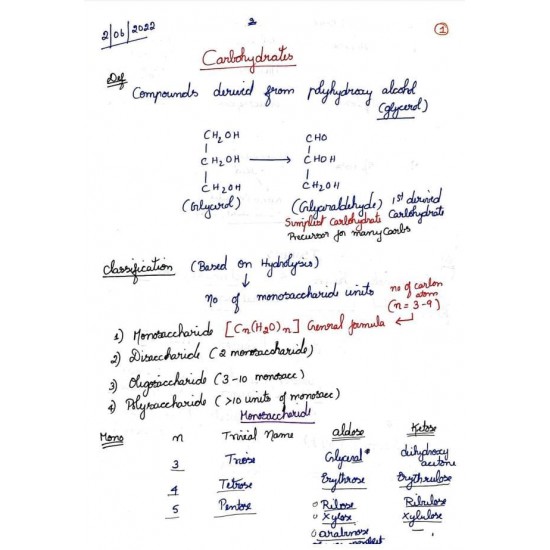 2/06/2022
2
1
Carbohydrates
Def
Compounds derived from polyhydroxy alcohol
(glycerol)
CH2OH CHO
CH2OH → CHOH
CH2OH CH2OH
(Glycerol) (Glyceraldehyde) 1st derived
Simplest Carbohydrate Carbohydrate
Precursor for many carbs
Classification (Based on Hydrolysis)
↓
No of monosaccharide units
no of carbon
atom
(n = 3-9)
1) Monosaccharide [Cn(H2O)n] General formula
2) Disaccharide (2 monosaccharide)
3) Oligosaccharide (3-10 monosacc)
4) Polysaccharide (>10 units of monosacc)
Monosaccharide
Mono n Trivial Name aldose Ketose
3 Triose Glyceral* dihydroxy
acetone
4 Tetrose Erythrose Erythrulose
5 Pentose o Ribose Ribulose
o Xylose Xylulose
o arabinose —